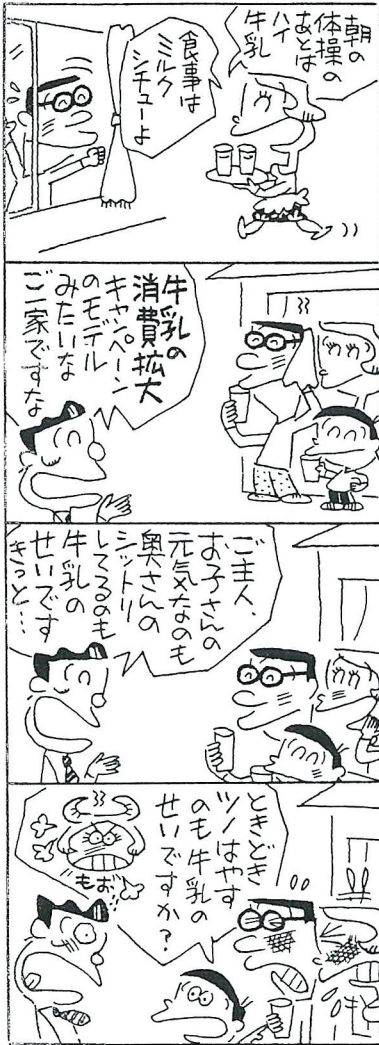 朝の
体操の
あとは
ハイ
牛乳
食事は
ミルク
シチューよ
牛乳の
消費拡大
キャンペーン
のモデル
みたいな
ご一家ですな
ご主人、
お子さんの
元気なのも
奥さんの
シットリ
してるのも
牛乳の
せいです
きっと…
ときどき
ツノはやす
のも牛乳の
せいですか？
もお